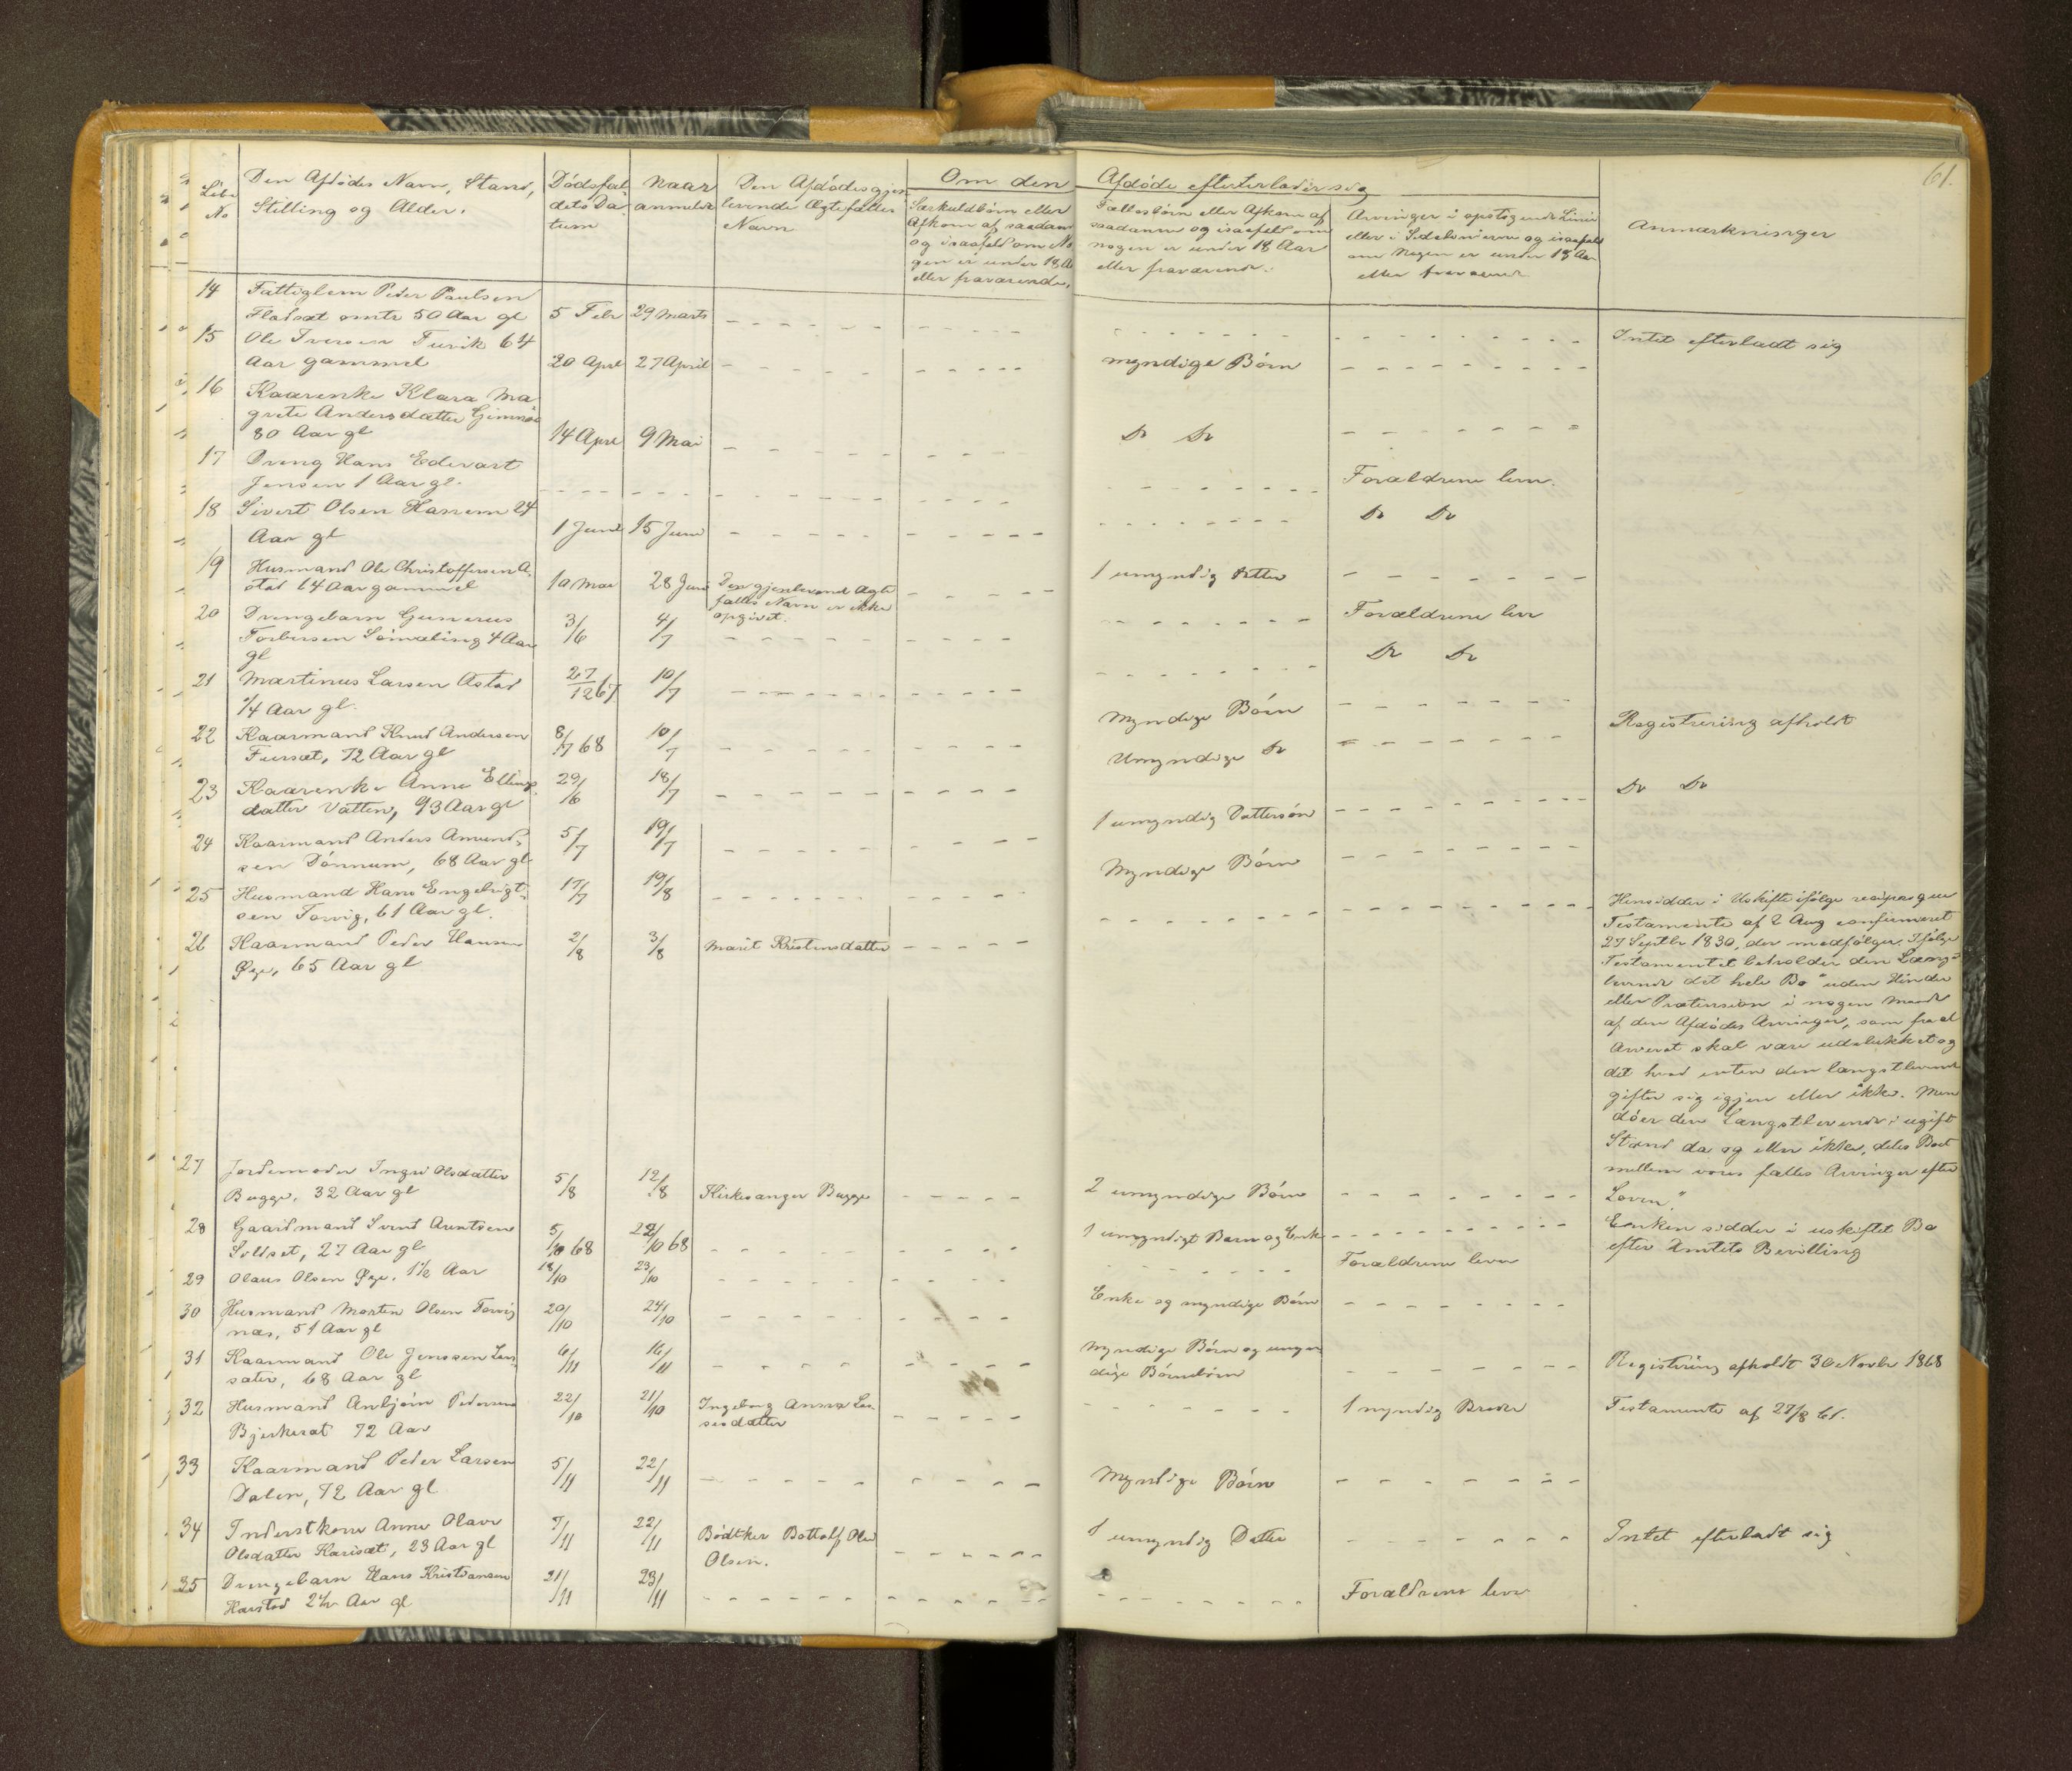 61.
Löbe No | Den Afdödes Navn, Stand, Stilling og Alder. | Dödsfaldets Datum | Naar anmeldt | Den Afdödes gjenlevende Ægtefælles Navn | Om den Afdöde efterlader sig
Særkuldbörn eller Afkom af saadan og isaafald om Nogen er under 18 Aar eller fraværende. | Fællesbörn eller Afkom af saadanne og isaafald om nogen er under 18 Aar eller fraværende. | Arvinger i opstigende Linie eller i Sidelinierne og isaafald om Nogen er under 18 Aar eller fraværende | Anmærkninger
14 Fattiglem Peder Paulsen
Hladsæt omtr 50 Aar gl 5 Febr 29 Marts - - - Intet efterladt sig
15 Ole Iversen Turik 64
Aar gammel 20 Aprl 27 April - - myndige Börn -
16 Kaarenke Klara Ma
grete Andersdatter Gimnæs
80 Aar gl 14 Aprl 9 Mai - - Do Do -
17 Dreng Hans Edevart
Jensen 1 Aar gl. - - - - - Forældrene leve.
18 Sivert Olsen Hanem 24
Aar gl 1 Juni 15 Juni - - - Do Do
19 Husmand Ole Christoffersen A
stad 64 Aar gammel 10 Mai 28 Juni Den gjenlevende Ægte
fælles Navn er ikke
opgivet. - 1 umyndig Datter -
20 Drengebarn Gunerus
Torbersen Sönvaling 4 Aar
gl 3/6 4/7 - - - Forældrene lever
21 Martinus Larsen Astad
1/4 Aar gl. 27/12 67 10/7 - - - Do Do
22 Kaarmand Knud Andersen
Fursæt, 72 Aar gl 8/7 68 10/7 - - Myndige Börn - Registrering afholdt
23 Kaarenke Anne Ellings
datter Vatten, 93 Aar gl 29/6 18/7 - - Umyndige Do - Do Do
24 Kaarmand Anders Amund-
sen Dönnum, 68 Aar gl 5/7 19/7 - - 1 umyndig Dattersön -
25 Husmand Hans Engebrigt-
sen Torvig, 61 Aar gl. 17/7 19/8 - - Myndige Börn -
26 Kaarmand Peder Hansen
Øye, 65 Aar gl 2/8 3/8 Marit Kristensdatter - - -
Hensidder i Uskifte ifölge reciproque
Testamente af 2 Aug confirmeret
27 Septbr 1830, der medfölger. Ifölge
Testamentet beholder den Læng-
levende det hele Bo "uden Hinder
eller Prætension i nogen Maade
af den Afdödes Arvinger, som fra al
Arveret skal være udelukket og
det hvad enten den længstlevende
gifter sig igjen eller ikke. Men
döer den Længstlevende i ugift
Stand da og eller ikke, deles Boet
mellem vores fælles Arvinger efter
Loven."
27 Jordemoder Ingri Olsdatter
Bugge, 32 Aar gl 5/8 12/8 Kirkesanger Bugge - 2 umyndige Börn -
28 Gaardmand Svend Arntsen
Soldset, 27 Aar gl 5/10 68 22/10 68 - - 1 umyndigt Barn og Enke - Enken sidder i uskiftet Bo
efter Amtets Bevilling
29 Olaus Olsen Øye. 1 1/2 Aar 18/10 23/10 - - - Forældrene lever
30 Husmand Morten Olsen Torvig
næs, 51 Aar gl 20/10 24/10 - - Enke og myndige Börn -
31 Kaarmand Ole Jenssen Lan-
sæter, 68 Aar gl 6/11 16/11 - - Myndige Börn og umyn
dige Börnebörn - Registrering afholdt 30 Novbr 1868
32 Husmand Anbjörn Pedersen
Bjerkesæt 72 Aar 22/10 21/10 Ingeborg Anna Las-
sesdatter - - 1 myndig Broder Testamente af 27/8 61.
33 Kaarmand Peder Larsen
Dalen, 72 Aar gl 5/11 22/11 - - Myndige Börn -
34 Inderstkone Anne Olave
Olsdatter Karisæt, 23 Aar gl 7/11 22/11 Bödtker Bottolf Olai
Olsen. - 1 umyndig Datter - Intet efterladt sig
35 Drengebarn Hans Kristiansen
Harstad 2 1/2 Aar gl 21/11 23/11 - - - Forældrene lever